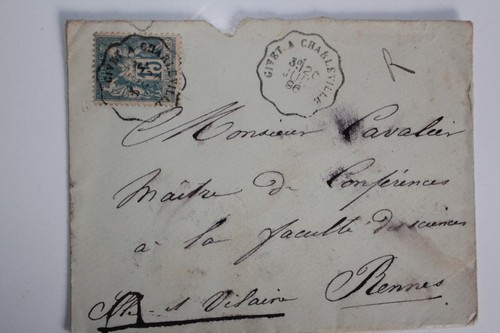 GIVET A CHARLEVILLE
15
GIVET A CHARLEVILLE
Monsieur Cavalier
Maître de Conférences
à la faculté des sciences
Rennes
et Vilaine